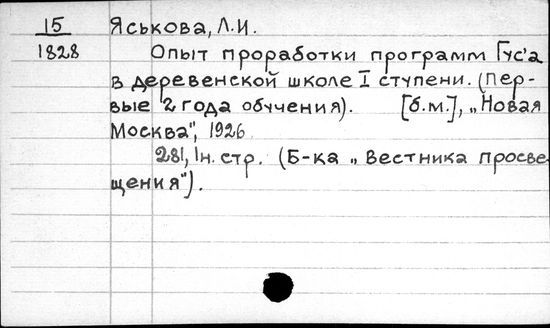 15 Яськова, Л.И.
1828 Опыт проработки программ Гус'а
в деревенской школе I ступени. (Пер-
вые 2 года обучения). [б.м.], „Новая
Москва", 1926
281, 1н. стр. (Б-ка „Вестника просве-
щения").